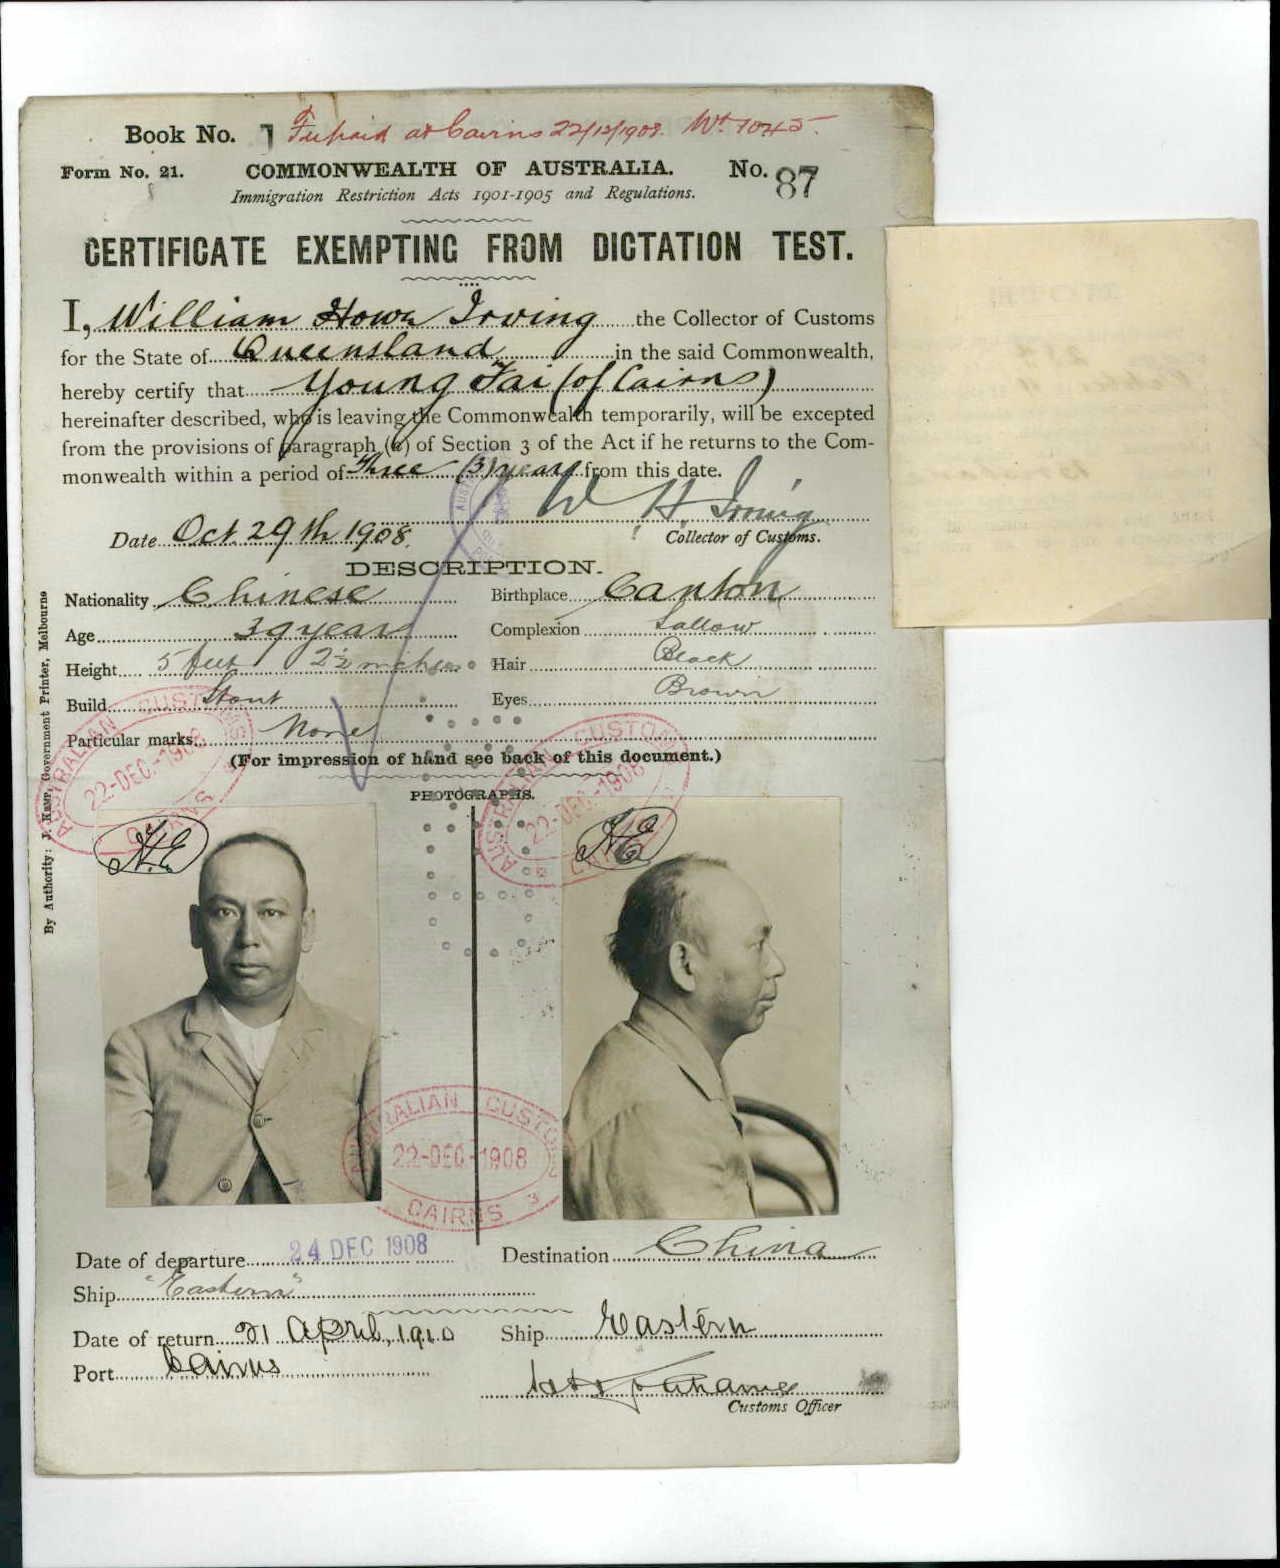 Book No. 1 at Cairns 22/12/1908. No. 7045.
Form No. 21. COMMONWEALTH OF AUSTRALIA. No. 87
Immigration Restriction Acts 1901-1905 and Regulations.
CERTIFICATE EXEMPTING FROM DICTATION TEST.
I, William Howe Irving the Collector of Customs
for the State of Queensland in the said Commonwealth,
hereby certify that Young Tai (of Cairns)
hereinafter described, who is leaving the Commonwealth temporarily, will be excepted
from the provisions of paragraph (a) of Section 3 of the Act if he returns to the Com-
monwealth within a period of Three (3) years from this date.
W H Irving
Date Oct. 29th 1908. Collector of Customs.
DESCRIPTION.
Nationality Chinese Birthplace Canton
Age 39 years Complexion Sallow
Height 5 feet 2½ inches Hair Black
Build Stout Eyes Brown
Particular marks None
(For impression of hand see back of this document.)
PHOTOGRAPHS.
AUSTRALIAN CUSTOMS 22-DEC.-1908 CAIRNS
AUSTRALIAN CUSTOMS 22-DEC.-1908 CAIRNS
By Authority: J. Kemp, Government Printer, Melbourne
H.E
H.E
AUSTRALIAN CUSTOMS 22-DEC.-1908 CAIRNS 3
Date of departure 24 DEC 1908 Destination China
Ship "Eastern"
Date of return 21 April, 1910 Ship Eastern
Port Cairns
Customs Officer